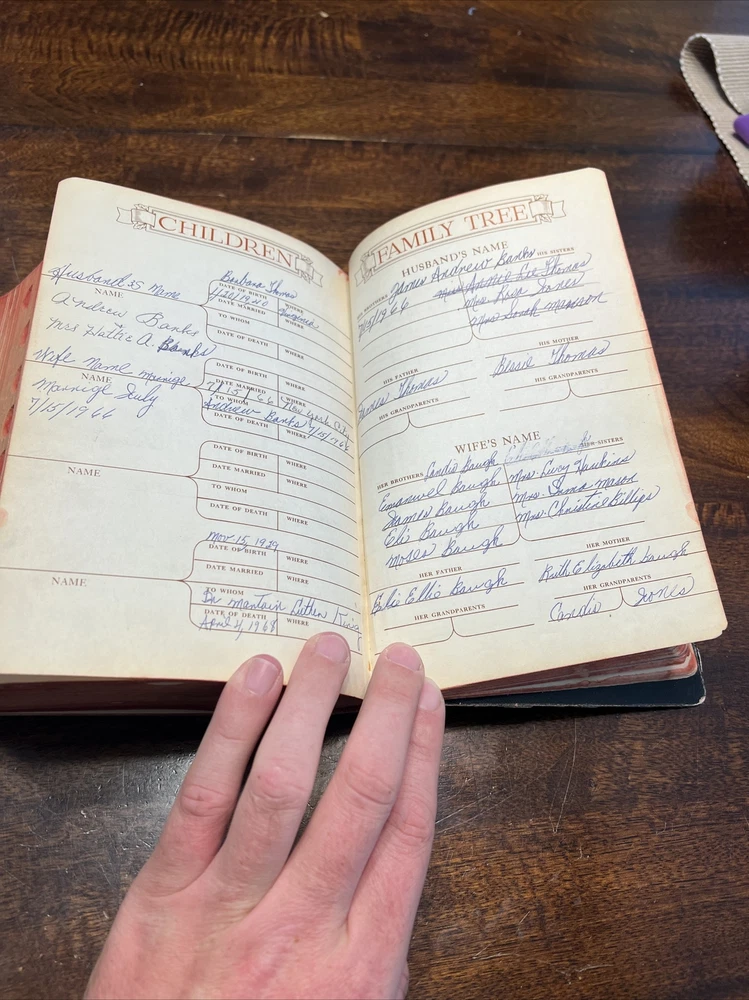 CHILDREN
Husband 85 Mame
NAME
Andrew Banks
Mrs Hattie A. Banks
Wife Name Mainige
NAME
Marrige July
7/15/1966
Barbara Thomas
DATE OF BIRTH WHERE
11/20/1940 Virginia
DATE MARRIED
TO WHOM
DATE OF DEATH WHERE
DATE OF BIRTH WHERE
DATE MARRIED
7/15/66 New York City
TO WHOM
Andrew Banks 7/15/766
DATE OF DEATH WHERE
NAME
DATE OF BIRTH WHERE
DATE MARRIED
TO WHOM
DATE OF DEATH WHERE
NAME
Mov. 15, 1929
DATE OF BIRTH WHERE
DATE MARRIED
TO WHOM
Dr Mantain Luthen King
DATE OF DEATH WHERE
April 4, 1968
FAMILY TREE
HUSBAND'S NAME
James Andrew Banks
HIS BROTHERS HIS SISTERS
7/15/1966 Annie Coe Thomas
Mrs Rosa Jones
Mrs Sarah Manson
HIS FATHER HIS MOTHER
James Thomas Bessie Thomas
HIS GRANDPARENTS HIS GRANDPARENTS
WIFE'S NAME
HER BROTHERS Candis Baugh HER SISTERS
Emanuel Baugh Mrs. Lucy Hawkins
James Baugh Mrs. Anna Mason
Eli Baugh Mrs. Christine Billips
Moses Baugh
HER FATHER HER MOTHER
Elie Ellie Baugh Ruth Elizabeth Baugh
HER GRANDPARENTS HER GRANDPARENTS
Candis Jones